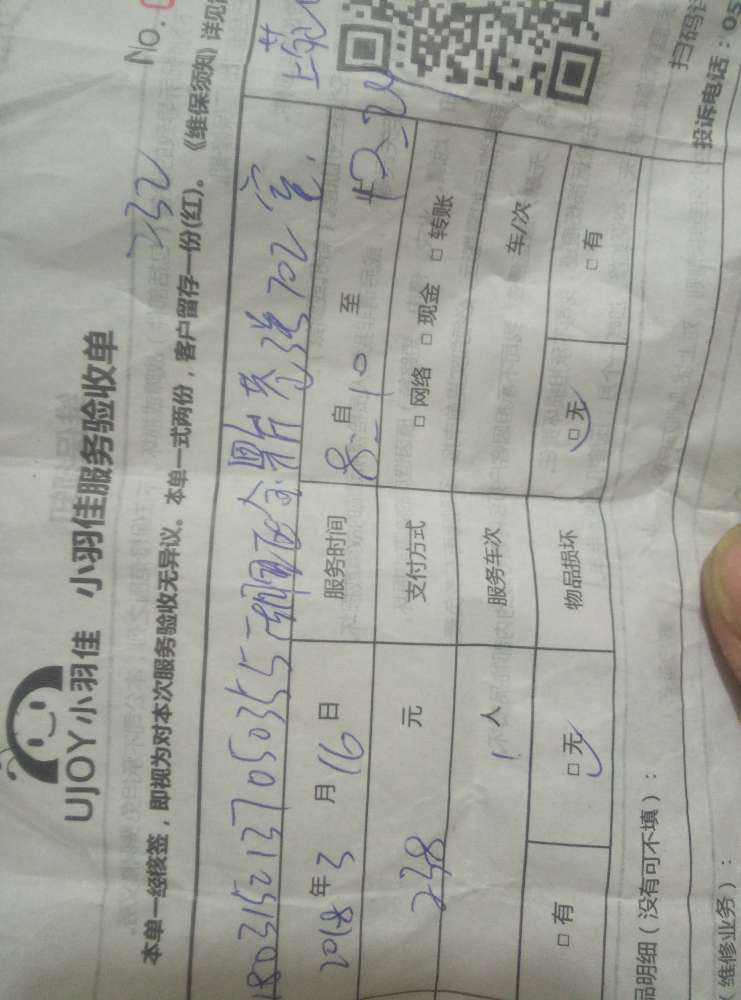 No.
UJOY小羽佳 小羽佳服务验收单
232
本单一经核签，即视为对本次服务验收无异议。本单一式两份，客户留存一份(红)。《维保须知》详见
180315213705035
702室
2018年3月16日 服务时间 8:10 自 至
238 元 支付方式 □网络 □现金 □转账
1 人 服务车次 车/次
□有 □无 物品损坏 □无 □有
品明细（没有可不填）：
（维修业务）：
扫码
投诉电话：05